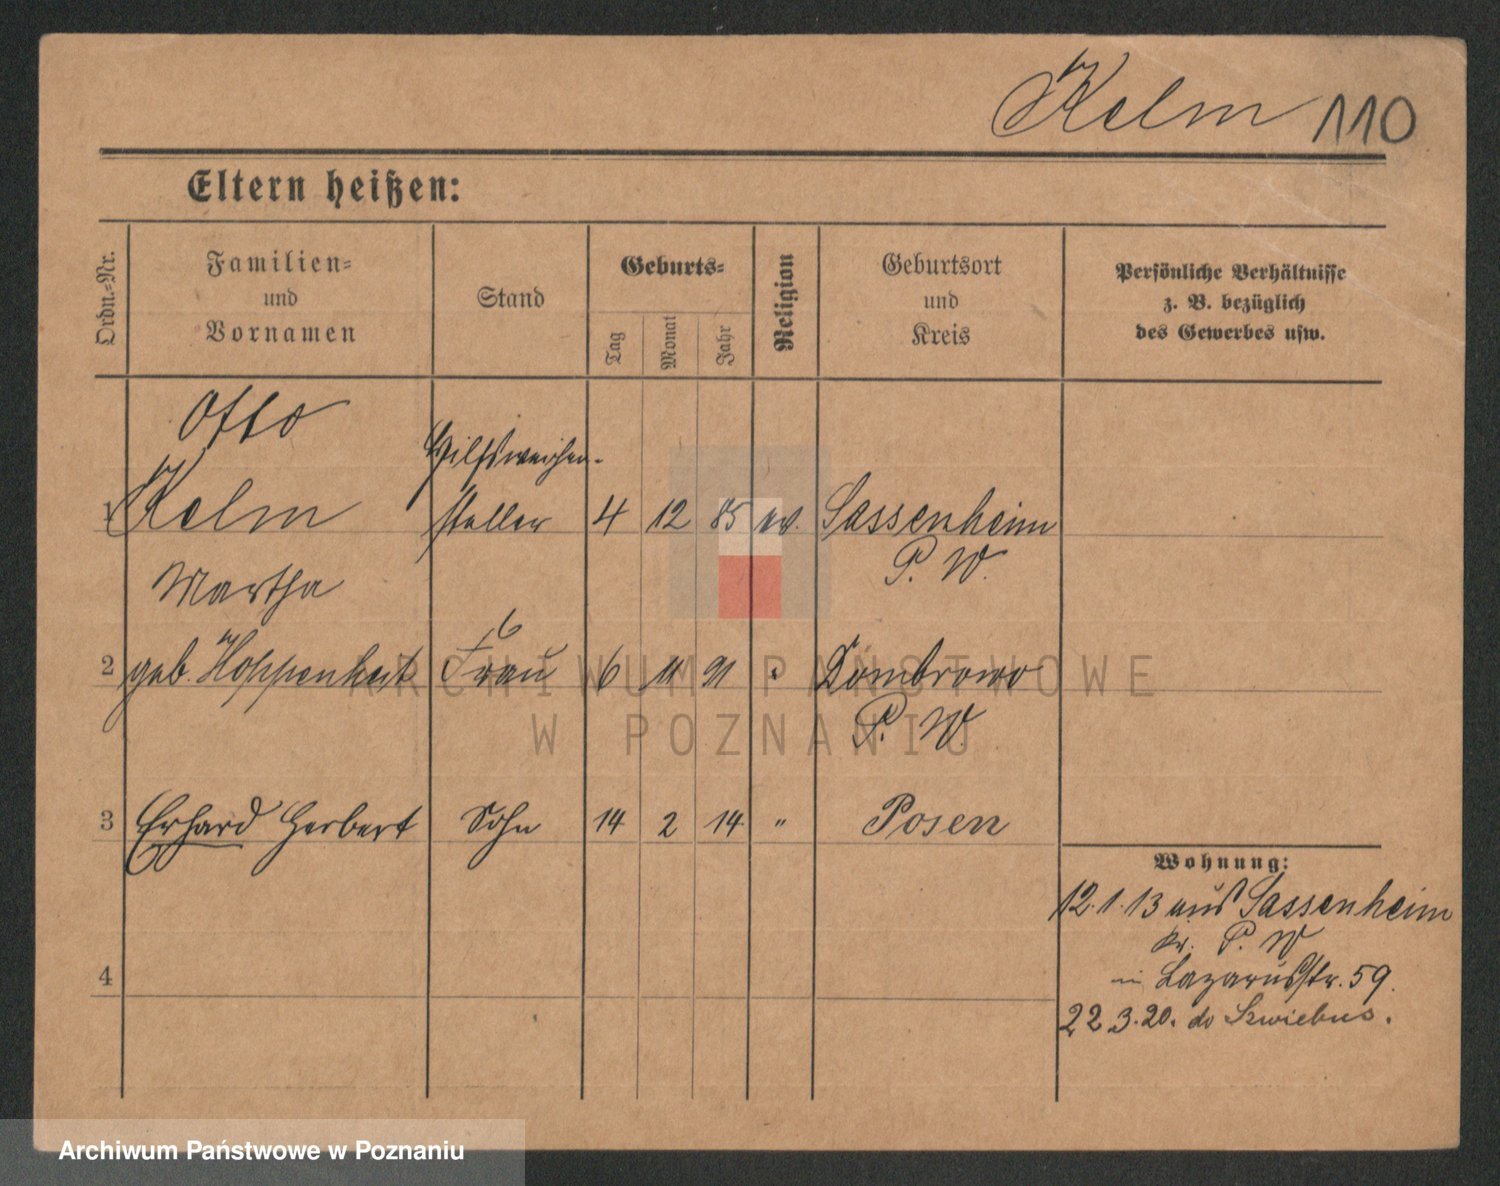 Kelm 110
Eltern heißen:
Ordn.-Nr.
Familien-
und
Vornamen
Stand
Geburts-
Tag
Monat
Jahr
Religion
Geburtsort
und
Kreis
Persönliche Verhältnisse
z. B. bezüglich
des Gewerbes usw.
Otto
Hilfsweichen-
1 Kelm steller 4 12 85 ev. Sassenheim
P. W.
Martha
2 geb. Hoppenheit Frau 6 11 91 " Dombrowo
P. W
3 Erhard Herbert Sohn 14 2 14 " Posen
Wohnung:
12.1.13 aus Sassenheim
Kr. P. W
in Lazarusstr. 59.
4
22 3.20. do Szwiebus.
ARCHIWUM PAŃSTWOWE
W POZNANIU
Archiwum Państwowe w Poznaniu